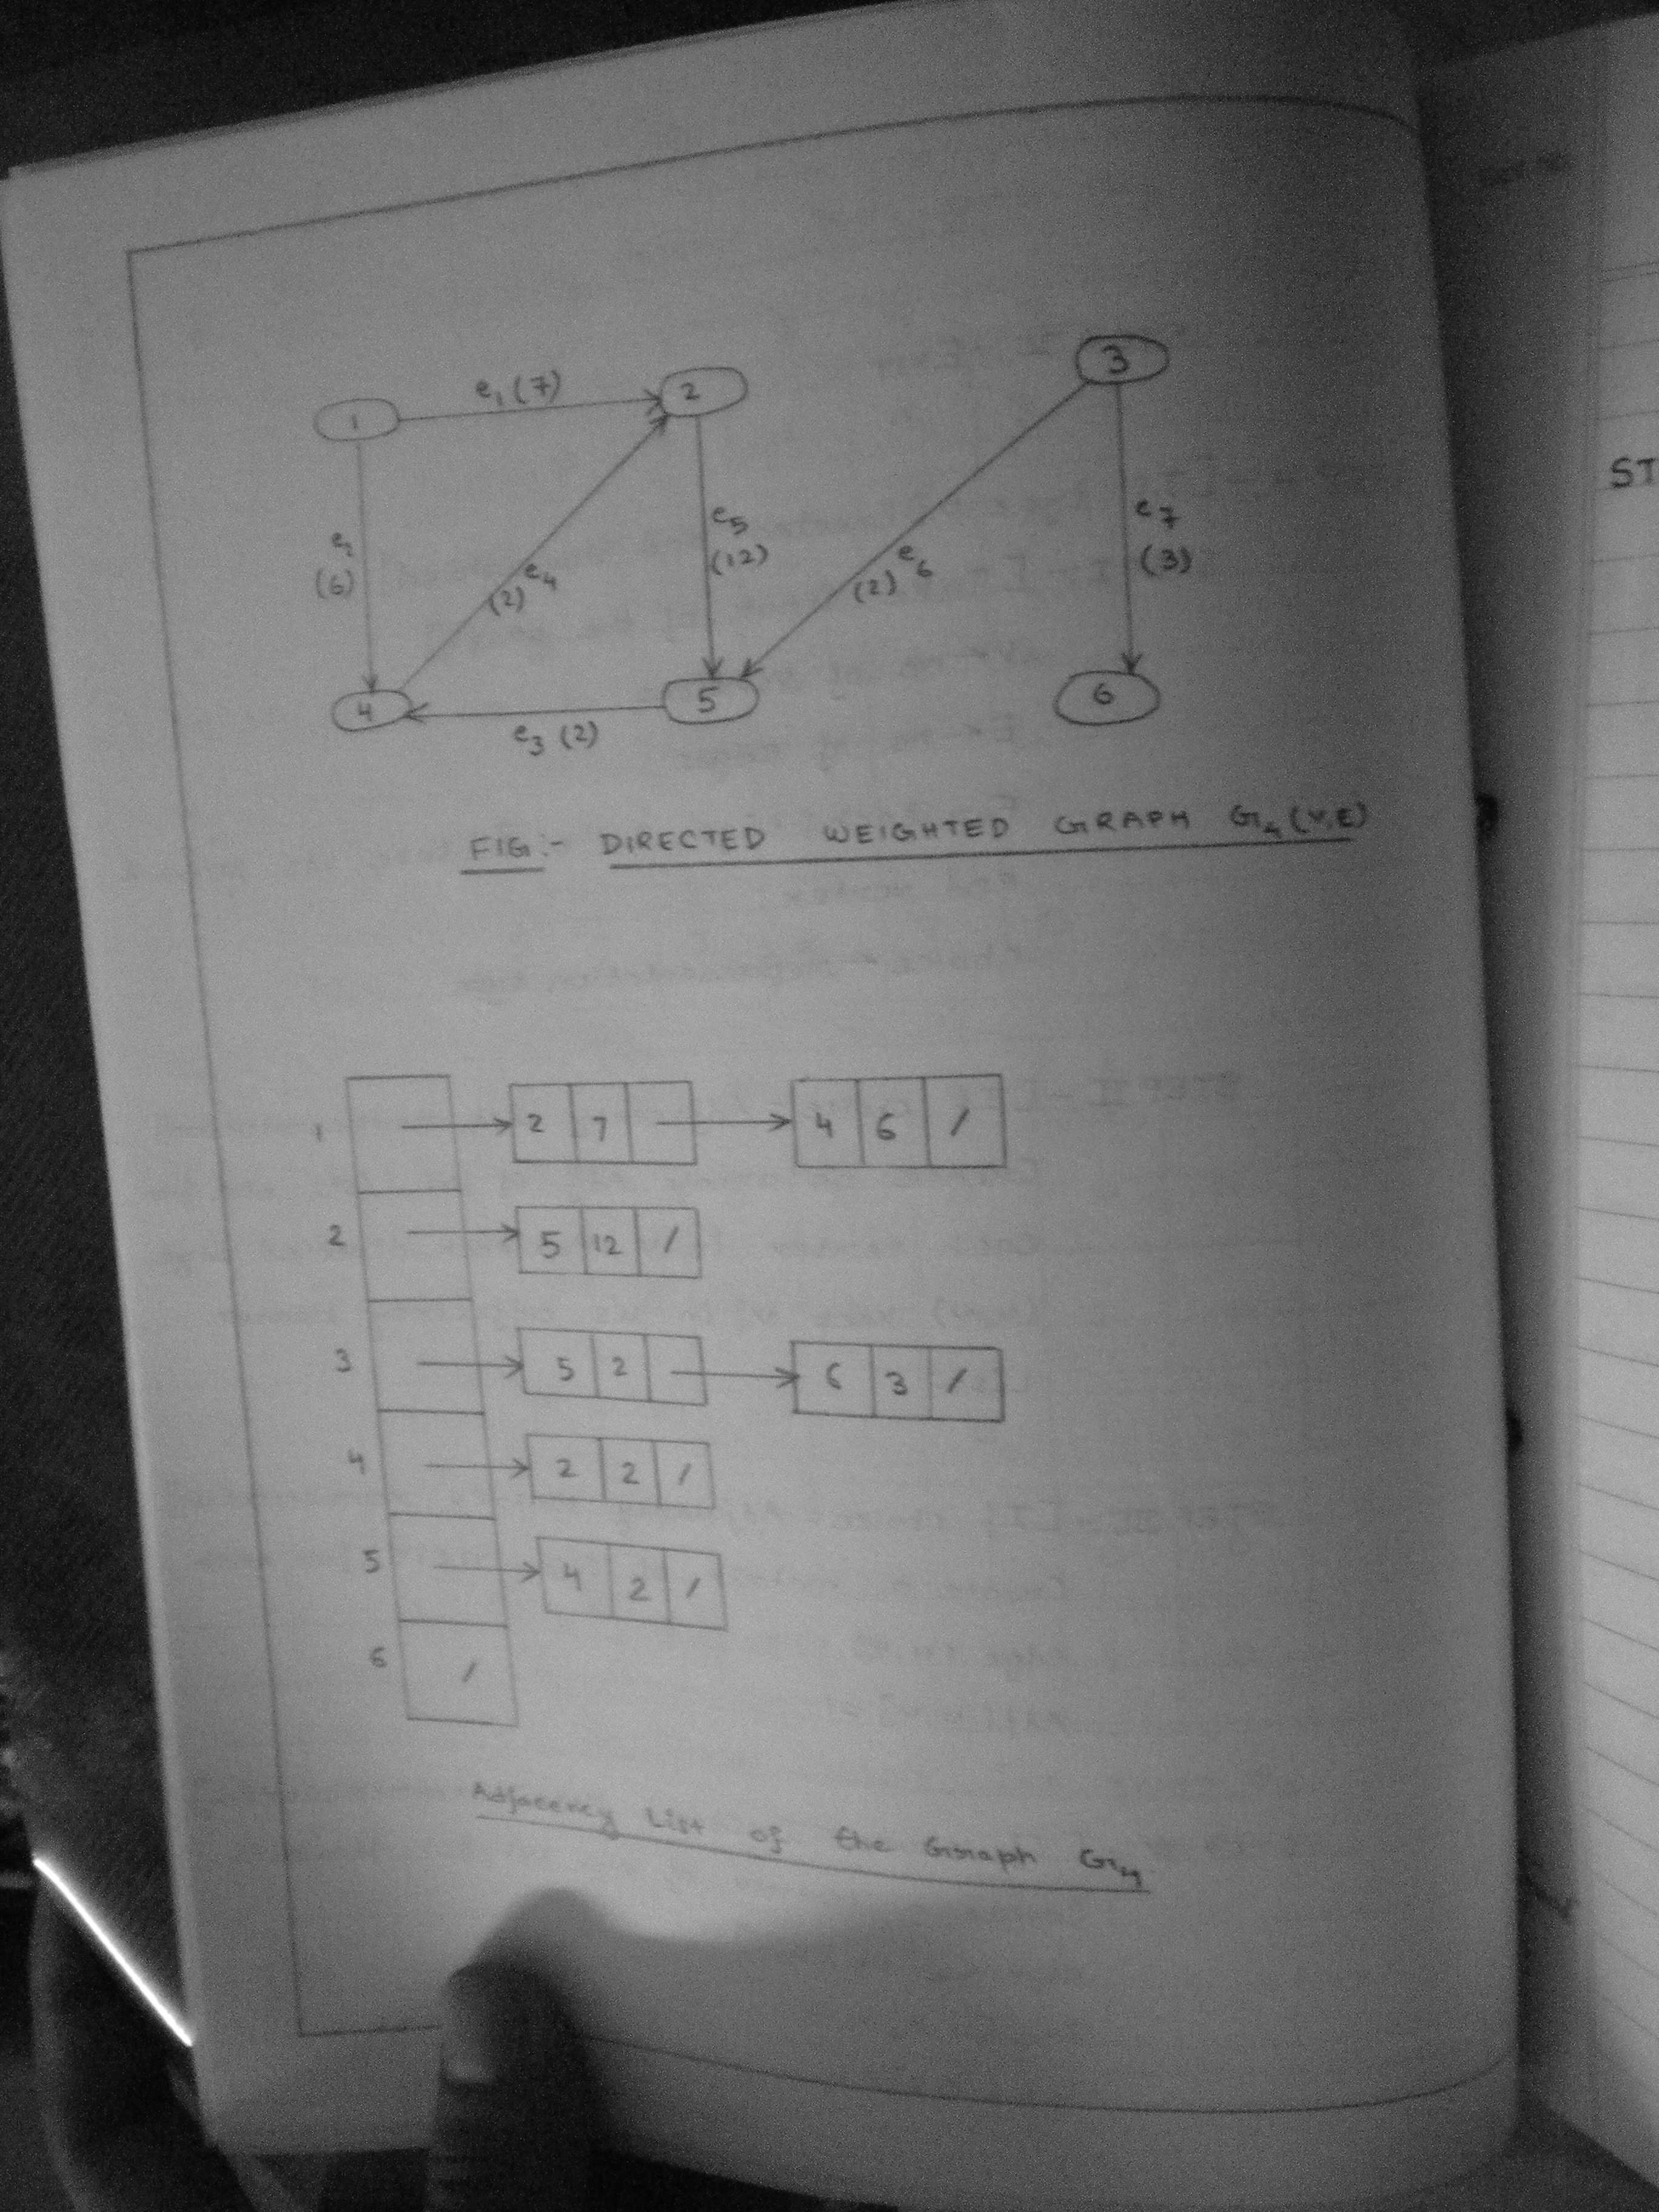 1
e1 (7)
2
3
e2
(6)
e4
(2)
e5
(12)
e6
(2)
e7
(3)
4
e3 (2)
5
6
FIG:- DIRECTED WEIGHTED GRAPH G4 (V,E)
1 2 7 4 6 /
2 5 12 /
3 5 2 6 3 /
4 2 2 /
5 4 2 /
6 /
Adjacency List of the Graph G4
ST